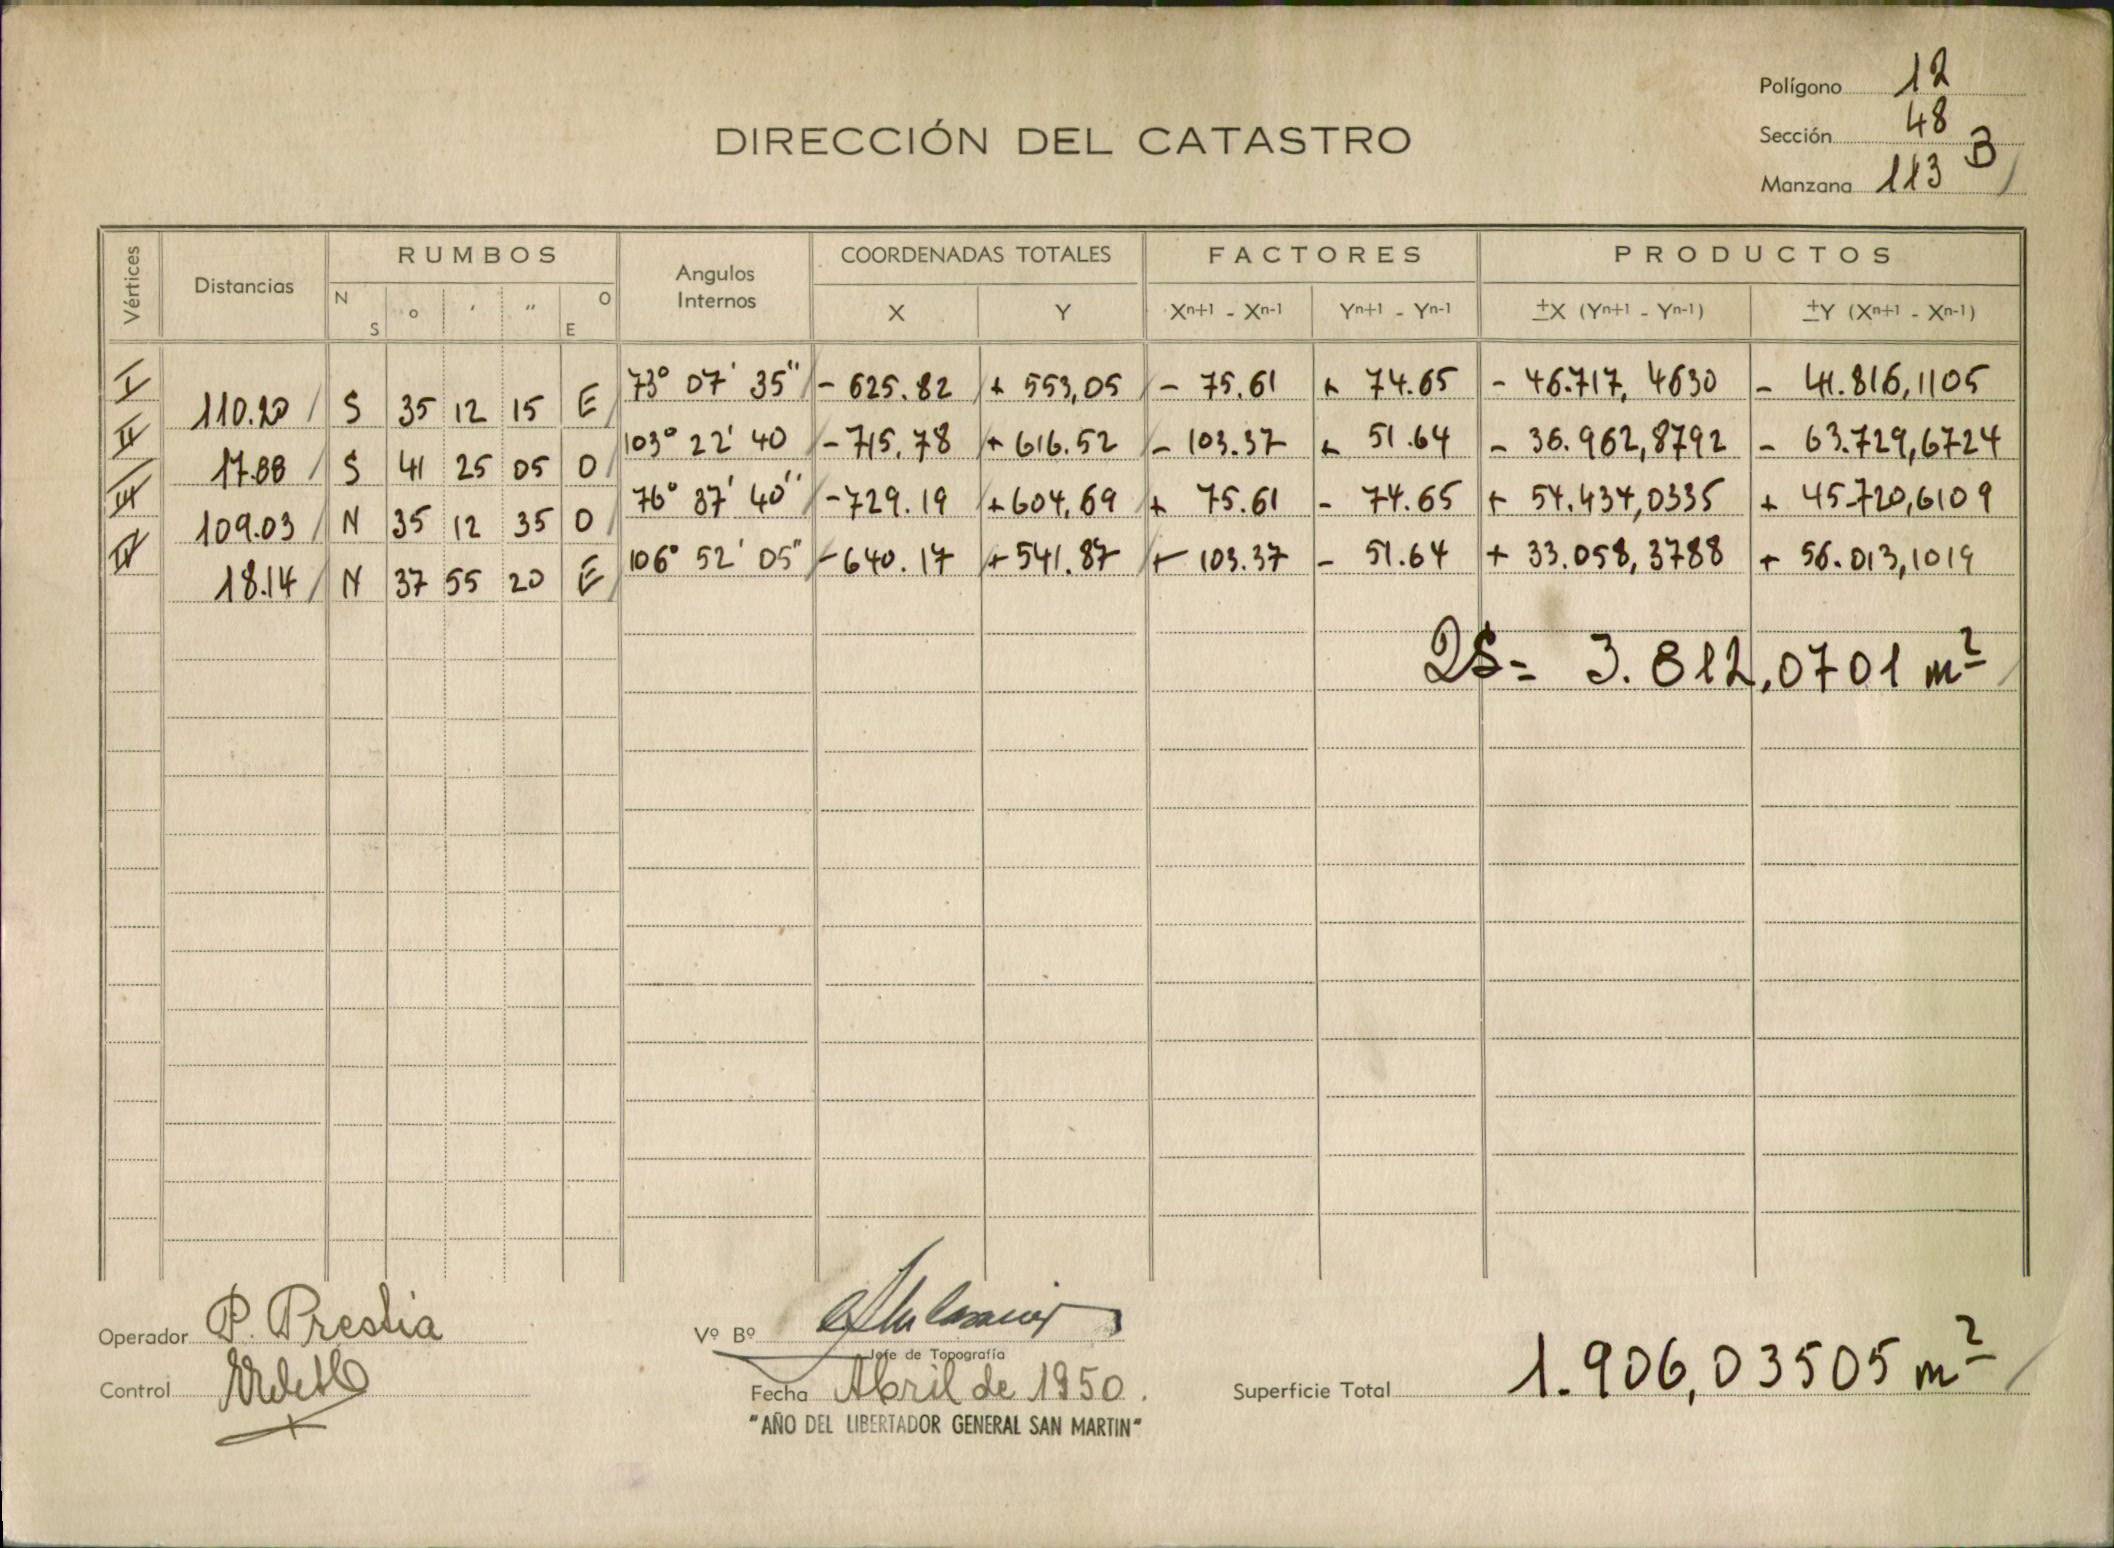 Polígono 12
Sección 48
Manzana 113 B
DIRECCIÓN DEL CATASTRO
Vértices Distancias RUMBOS Angulos Internos COORDENADAS TOTALES FACTORES PRODUCTOS
N S ° ' " O E X Y Xn+1 - Xn-1 Yn+1 - Yn-1 ±X (Yn+1 - Yn-1) ±Y (Xn+1 - Xn-1)
I 73° 07' 35" - 625.82 + 553,05 - 75.61 + 74.65 - 46.717,4630 - 41.816,1105
110.20 S 35 12 15 E
II 103° 22' 40 - 715.78 + 616.52 - 103.37 + 51.64 - 36.962,8792 - 63.729,6724
17.88 S 41 25 05 O
III 76° 37' 40" - 729.19 + 604.69 + 75.61 - 74.65 + 54.434,0335 + 45.720,6109
109.03 N 35 12 35 O
IV 106° 52' 05" - 640.17 + 541.87 + 103.37 - 51.64 + 33.058,3788 + 56.013,1019
18.14 N 37 55 20 E
2S = 3.812,0701 m²
Operador P. Prestia
Control
Vº Bº
Jefe de Topografía
Fecha Abril de 1950.
"AÑO DEL LIBERTADOR GENERAL SAN MARTIN"
Superficie Total 1.906,03505 m²